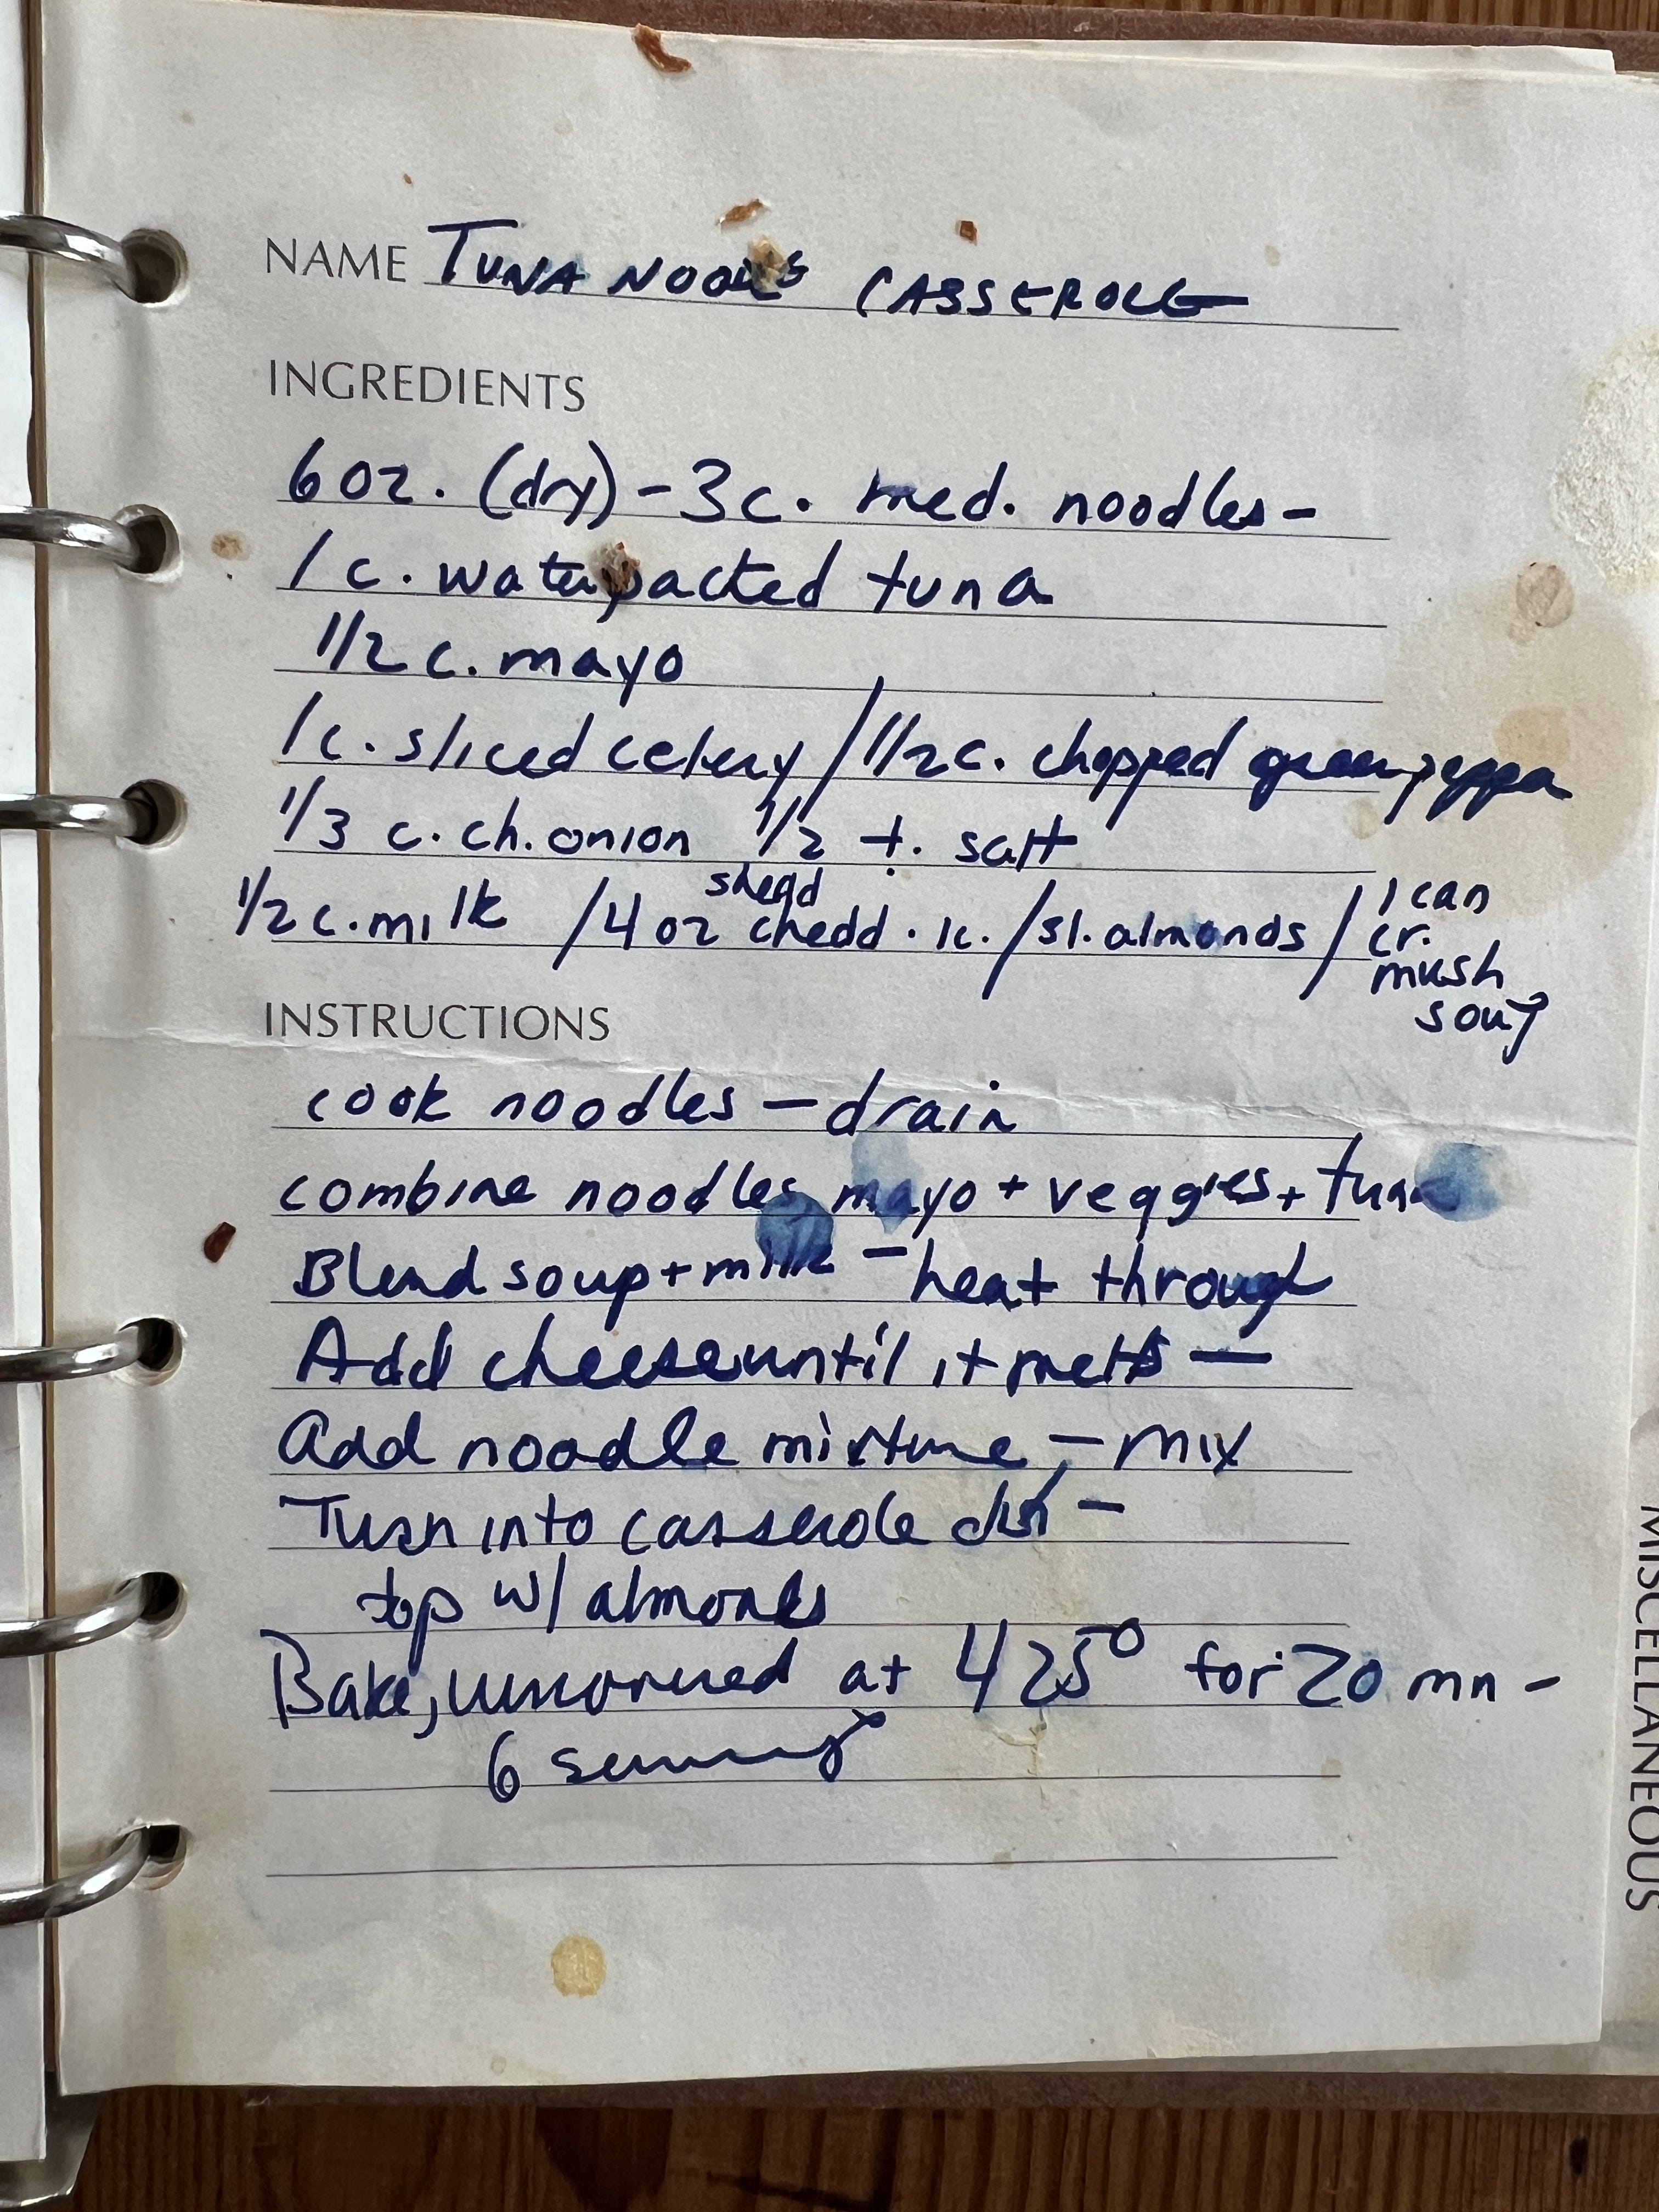 NAME TUNA NOODLE CASSEROLE
INGREDIENTS
6 oz. (dry) - 3 c. med. noodles -
1 c. water packed tuna
1/2 c. mayo
1 c. sliced celery / 1/2 c. chopped green pepper
1/3 c. ch. onion 1/2 t. salt
shedd
1/2 c. milk / 4 oz chedd. 1c. / sl. almonds / 1 can
cr.
mush
soup
INSTRUCTIONS
cook noodles — drain
combine noodles mayo + veggies + tuna
Blend soup + milk - heat through
Add cheese until it melts —
Add noodle mixture, — mix
Turn into casserole dish -
top w/ almonds
Bake, uncovered at 425° for 20 mn -
6 servings
MISCELLANEOUS